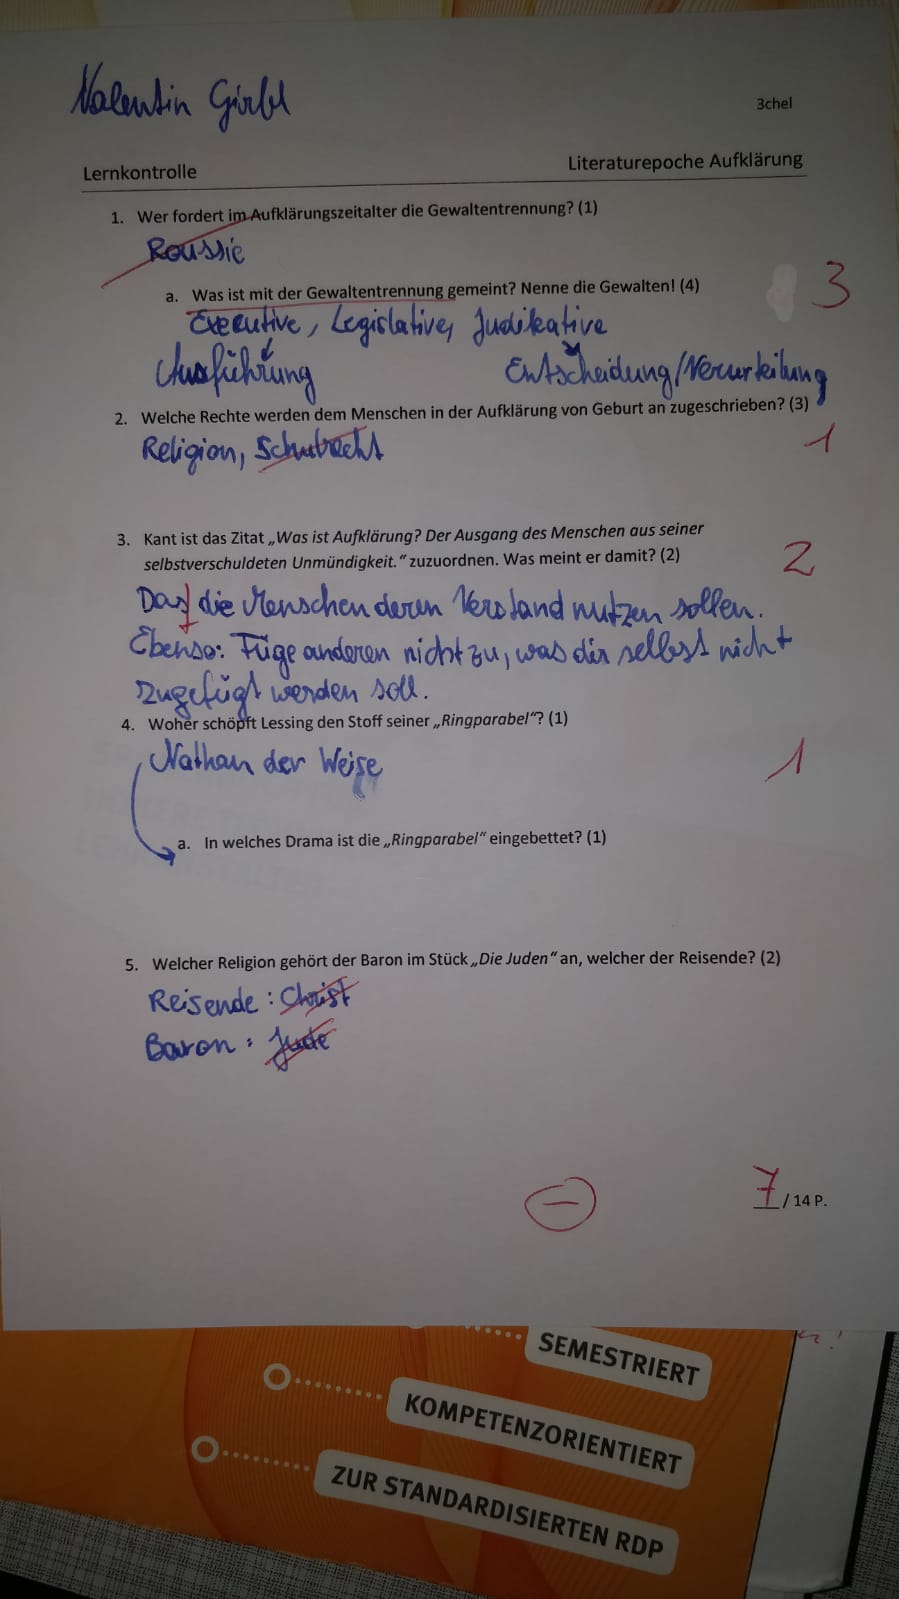 Valentin Girbl
3chel
Lernkontrolle Literaturepoche Aufklärung
1. Wer fordert im Aufklärungszeitalter die Gewaltentrennung? (1)
Roussie
a. Was ist mit der Gewaltentrennung gemeint? Nenne die Gewalten! (4)
3
Executive, Legislative, Judikative
Ausführung Entscheidung/Verurteilung
2. Welche Rechte werden dem Menschen in der Aufklärung von Geburt an zugeschrieben? (3)
Religion, Schulrecht
1
3. Kant ist das Zitat „Was ist Aufklärung? Der Ausgang des Menschen aus seiner
selbstverschuldeten Unmündigkeit.“ zuzuordnen. Was meint er damit? (2)
2
Das die Menschen deren Verstand nutzen sollen.
Ebenso: Füge anderen nicht zu, was dir selbst nicht
zugefügt werden soll.
4. Woher schöpft Lessing den Stoff seiner „Ringparabel“? (1)
Nathan der Weise
1
a. In welches Drama ist die „Ringparabel“ eingebettet? (1)
5. Welcher Religion gehört der Baron im Stück „Die Juden“ an, welcher der Reisende? (2)
Reisende: Christ
Baron: Jude
7 / 14 P.
SEMESTRIERT
KOMPETENZORIENTIERT
ZUR STANDARDISIERTEN RDP